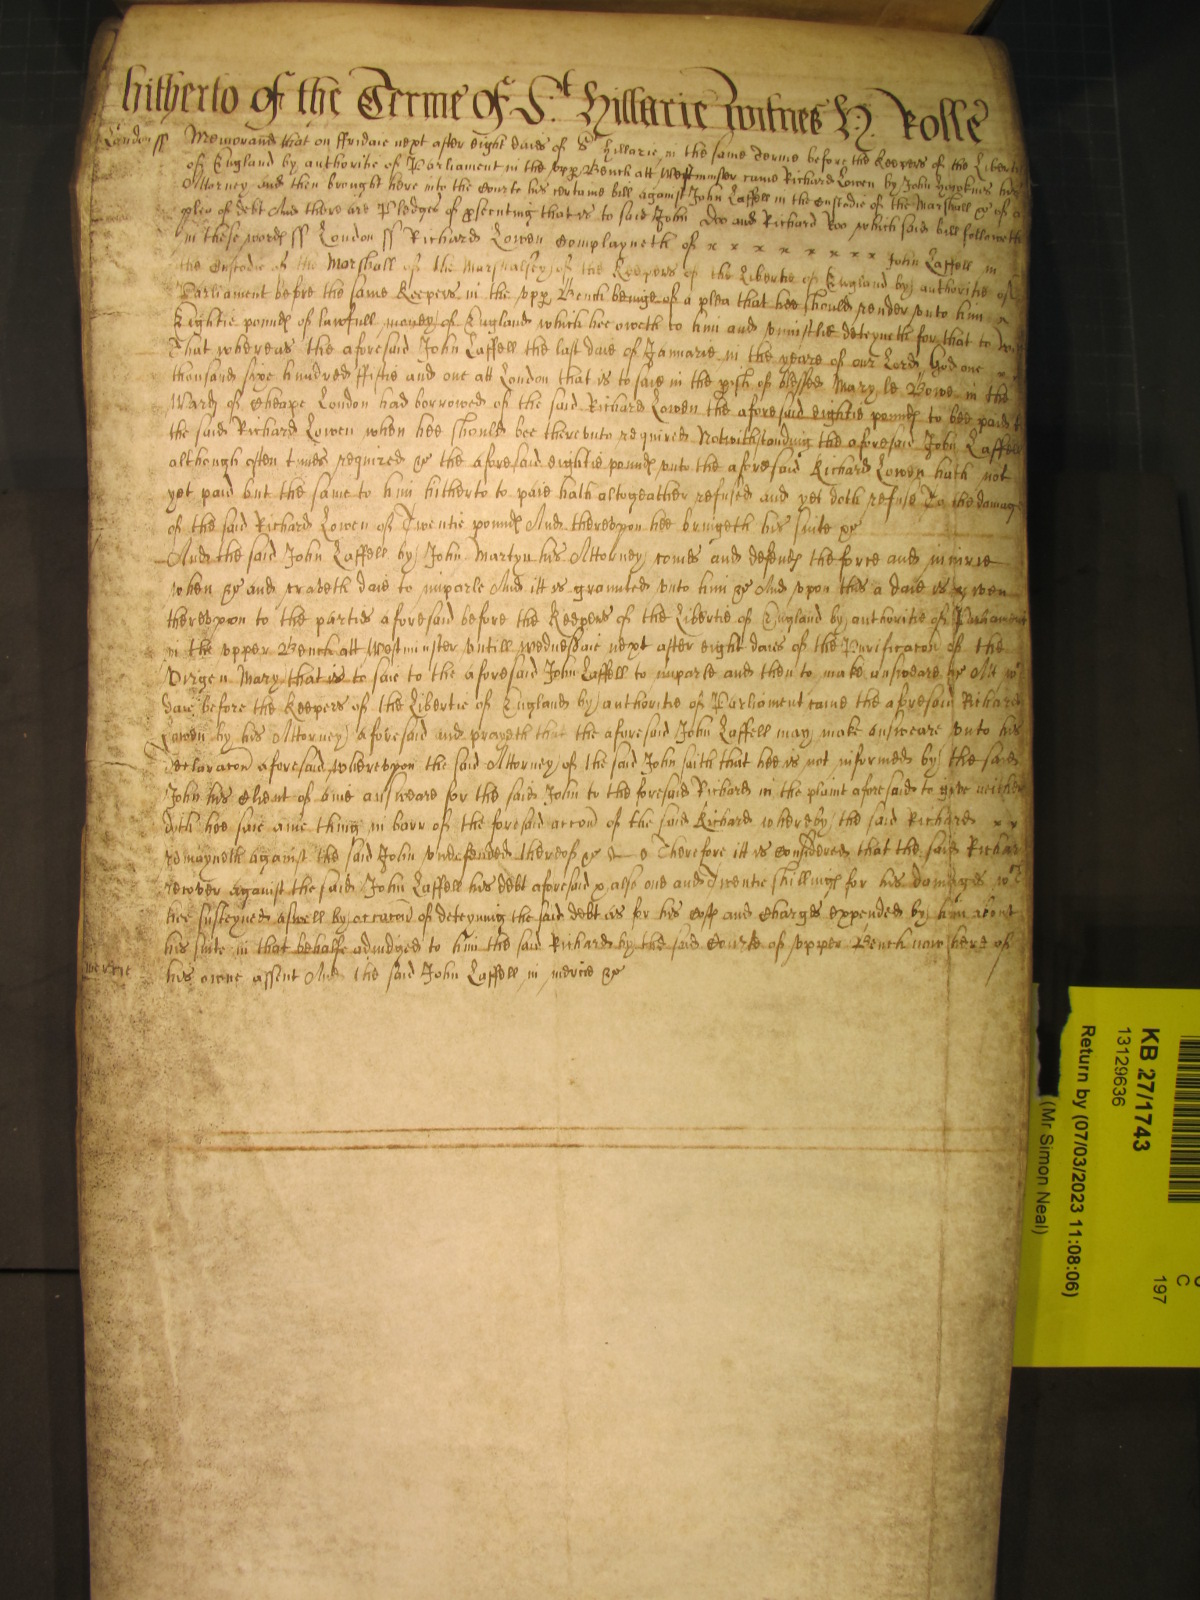 hitherto of the Terme of St. Hillarie witnes H. Rolle
London ss Memorand that on ffridaie next after eight daies of St Hillarie in the same Terme before the Keepers of the Libertie
of England by authoritie of Parliament in the vpp Bench att Westminster came Richard Lowen by John Hopkines his
Attorney And then brought here into the Courte his certaine bill against John Laffell in the custodie of the Marshall &c of a
plea of debt And there are Pledges of psecuting that is to saie John Doo and Richard Roo which said bill followeth
in these words ss London ss Richard Lowen Complayneth of x x x x x x x x John Laffell in
the Custodie of the Marshall of the Marshalsey of the Keepers of the Libertie of England by authoritie of
Parliament before the same Keepers in the vpp Bench beinge of a plea that hee should render vnto him x
Eightie pounds of lawfull money of England which hee oweth to him and vniustlie deteyneth for that to witt
That whereas the aforesaid John Laffell the last daie of Januarie in the yeare of our Lord God one x x
thousand sixe hundred fiftie and one att London that is to saie in the pish of blessed Mary le Bowe in the
Ward of Cheape London had borrowed of the said Richard Lowen the aforesaid eightie pounds to bee paid t
the said Richard Lowen when hee should bee therevnto required Notwithstanding the aforesaid John Laffell
although often tymes required &c the aforesaid eightie pounds vnto the aforesaid Richard Lowen hath not
yet paid but the same to him hitherto to paie hath altogeather refused and yet doth refuse To the damage
of the said Richard Lowen of Twentie pounds And therevpon hee bringeth his suite &c
And the said John Laffell by John Martyn his Attorney comes and defends the force and iniurie
when &c and craveth daie to imparle And itt is graunted vnto him &c And vpon this a daie is given
therevpon to the parties aforesaid before the Keepers of the Libertie of England by authoritie of Parliament
in the vpper Bench att Westminster vntill Wednesdaie next after eight daies of the Purificacon of the
Virgen Mary that is to saie to the aforesaid John Laffell to imparle and then to make answeare &c Att wch
daie before the Keepers of the Libertie of England by authoritie of Parliament came the aforesaid Richard
Lowen by his Attorney aforesaid and prayeth that the aforesaid John Laffell may make answeare vnto his
declaracon aforesaid wherevpon the said Attorney of the said John saith that hee is not informed by the said
John his Client of anie answeare for the said John to the foresaid Richard in the plaint aforesaid to give neither
doth hee saie anie thing in barr of the foresaid accon of the said Richard whereby the said Richard x x
remayneth against the said John vndefended thereof &c Therefore itt is considered that the said Richard
recover against the said John Laffell his debt aforesaid & alsoe one and Twentie shillings for his damages wch
hee susteyned aswell by occacon of deteyning the said debt as for his costs and charges expended by him about
his suite in that behalfe adiudged to him the said Richard by the said Courte of vpper Bench now here of
his owne assent And the said John Laffell in mercie &c
mercie
KB 27/1743
13129636
Return by (07/03/2023 11:08:06)
(Mr Simon Neal)
197
C